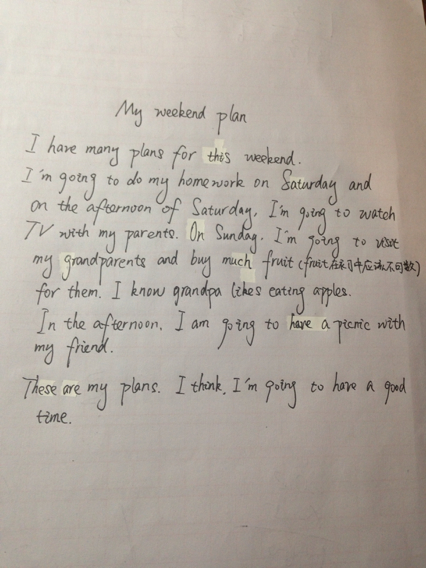 My weekend plan
I have many plans for this weekend.
I'm going to do my homework on Saturday and
on the afternoon of Saturday, I'm going to watch
TV with my parents. On Sunday, I'm going to visit
my grandparents and buy much fruit (fruit在采习中应动不可数)
for them. I know grandpa likes eating apples.
In the afternoon, I am going to have a picnic with
my friend.
These are my plans. I think, I'm going to have a good
time.